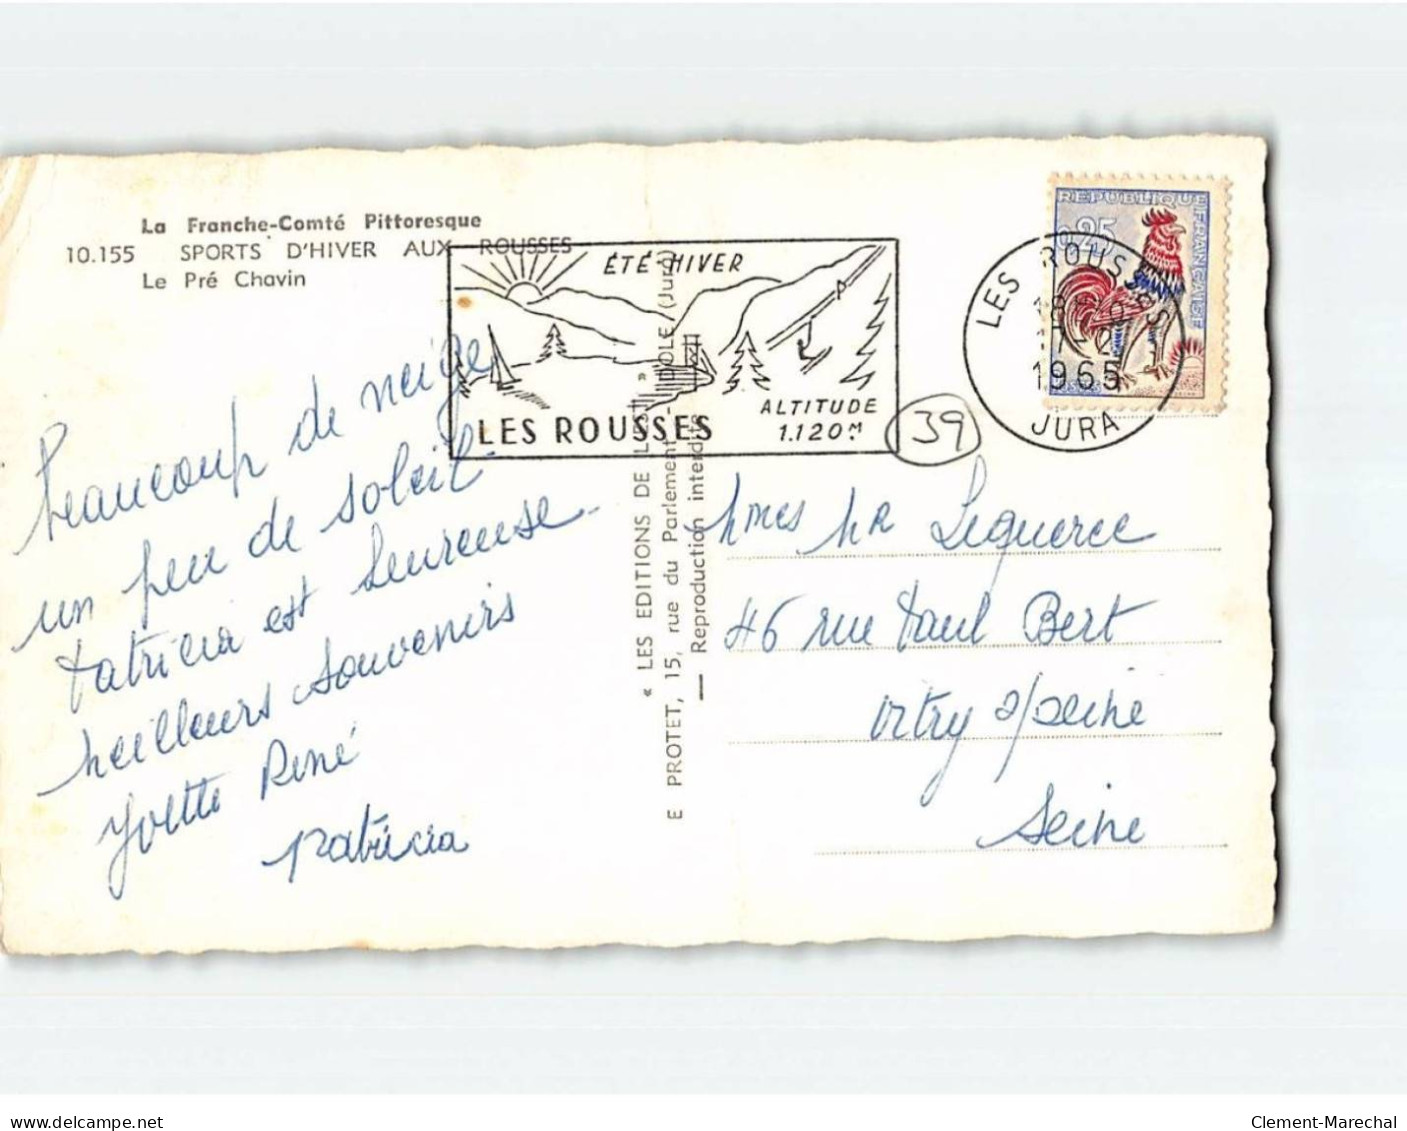 La Franche-Comté Pittoresque
10.155 SPORTS D'HIVER AUX ROUSSES
Le Pré Chavin
Beaucoup de neige
un peu de soleil
Patricia est heureuse
Meilleurs souvenirs
Yvette René
Patricia
ÉTÉ-HIVER
LES ROUSSES
ALTITUDE
1.120M
39
« LES EDITIONS DE L'EST »
E PROTET, 15, rue du Parlement - DOLE (Jura)
Reproduction interdite
REPUBLIQUE FRANÇAISE
0,25
LES ROUSSES
17-2
1965
JURA
Mmes MR
46 rue Paul Bert
Vitry s/Seine
Seine
delcampe.net
Clement-Marechal